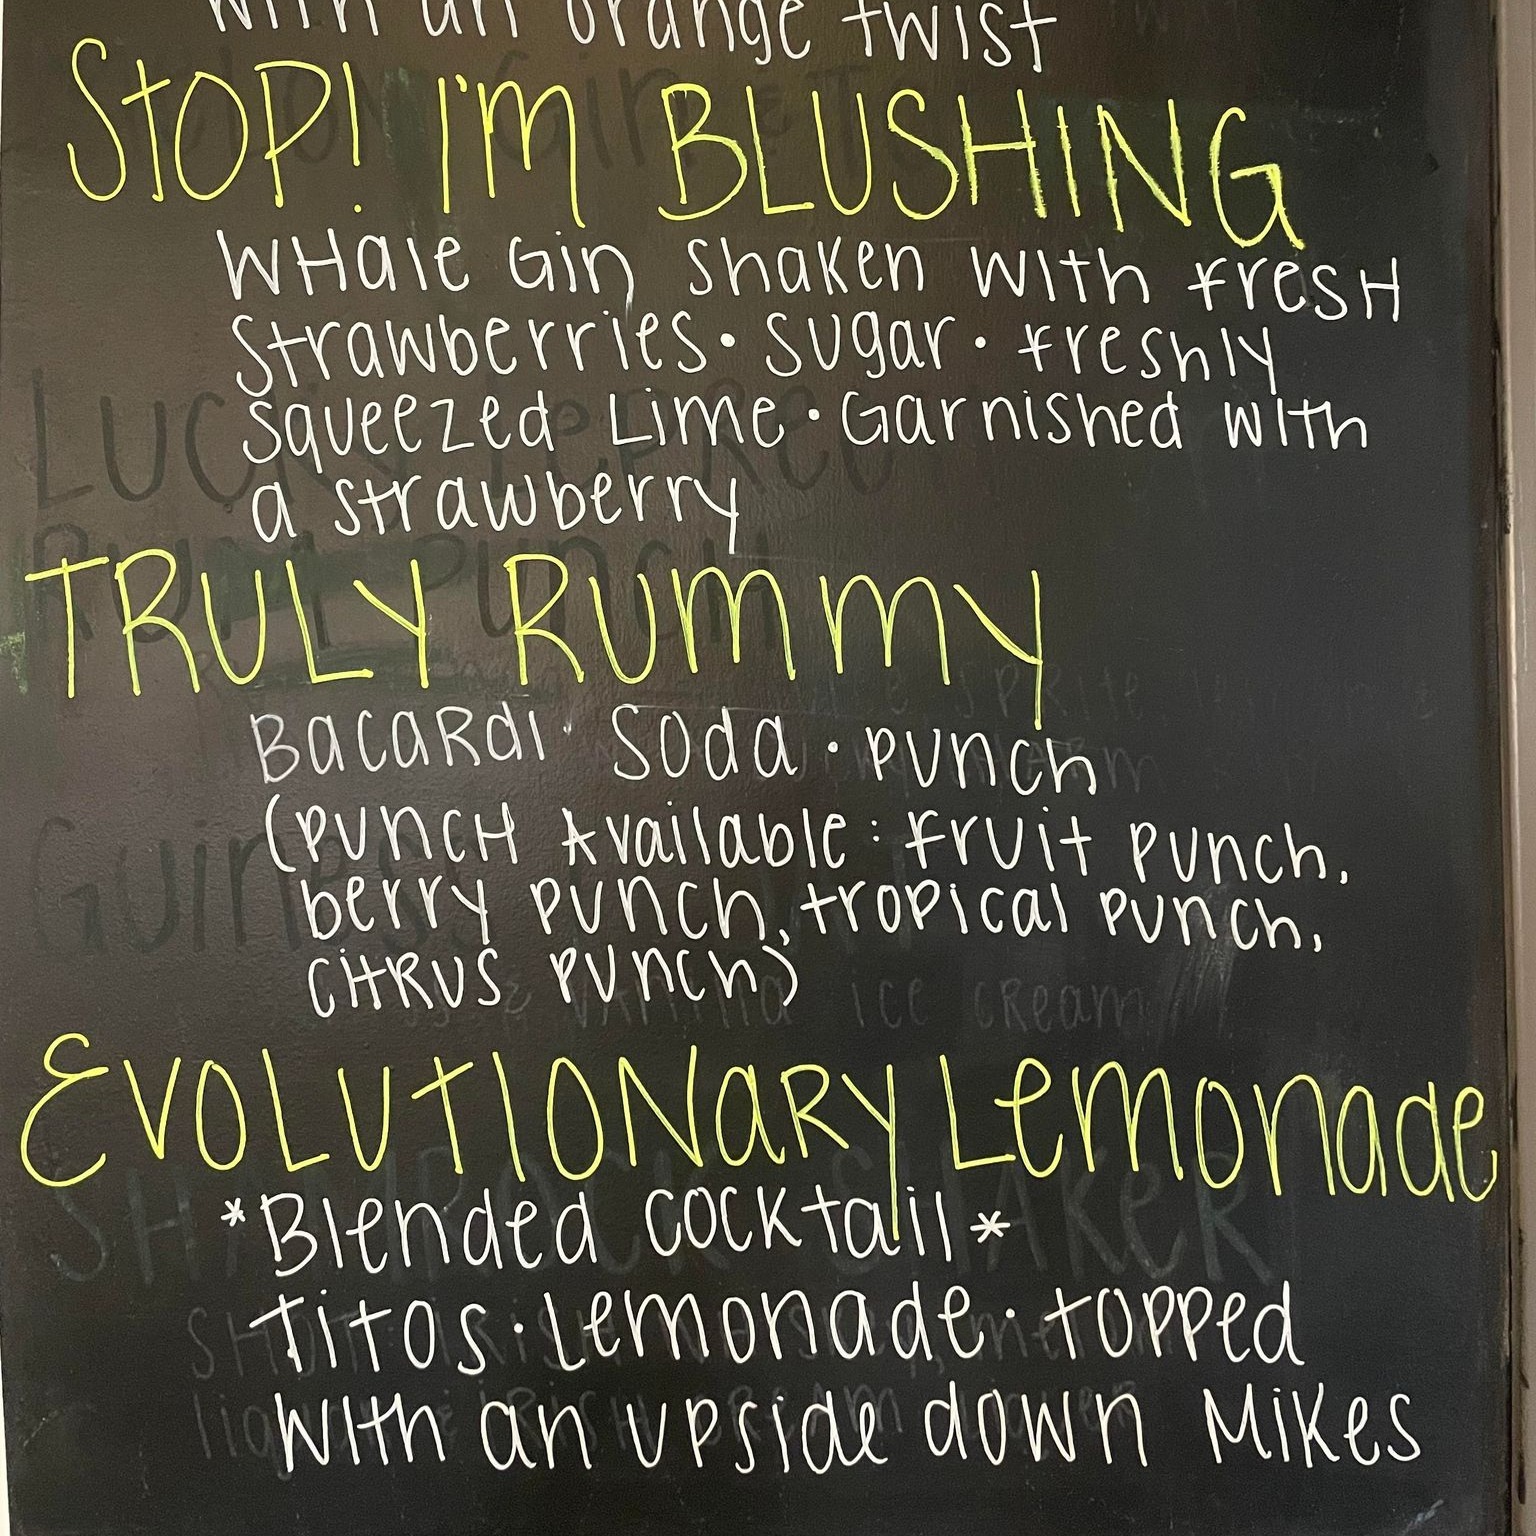 with an orange twist
STOP! I'M BLUSHING
WHale Gin shaken with fresH
strawberries • sugar • freshly
squeezed Lime • Garnished with
a strawberry
TRULY RUmmy
BacaRdi • Soda • punch
(puncH Available: fruit punch,
berry punch, tropical punch,
CiTRUS punch)
EVOLUTIONaRy Lemonade
*Blended cocktail*
Titos • Lemonade • topped
with an upside down Mikes